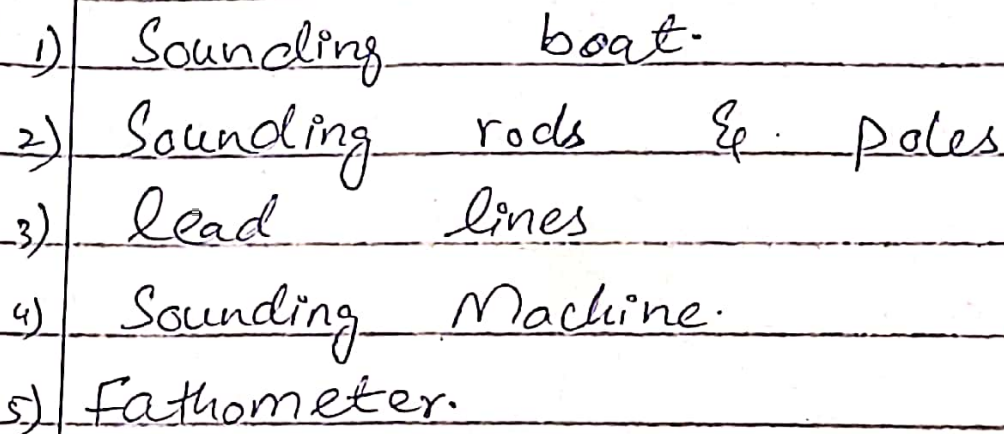 1) Sounding boat.
2) Sounding rods & poles
3) lead lines
4) Sounding Machine.
5) Fathometer.